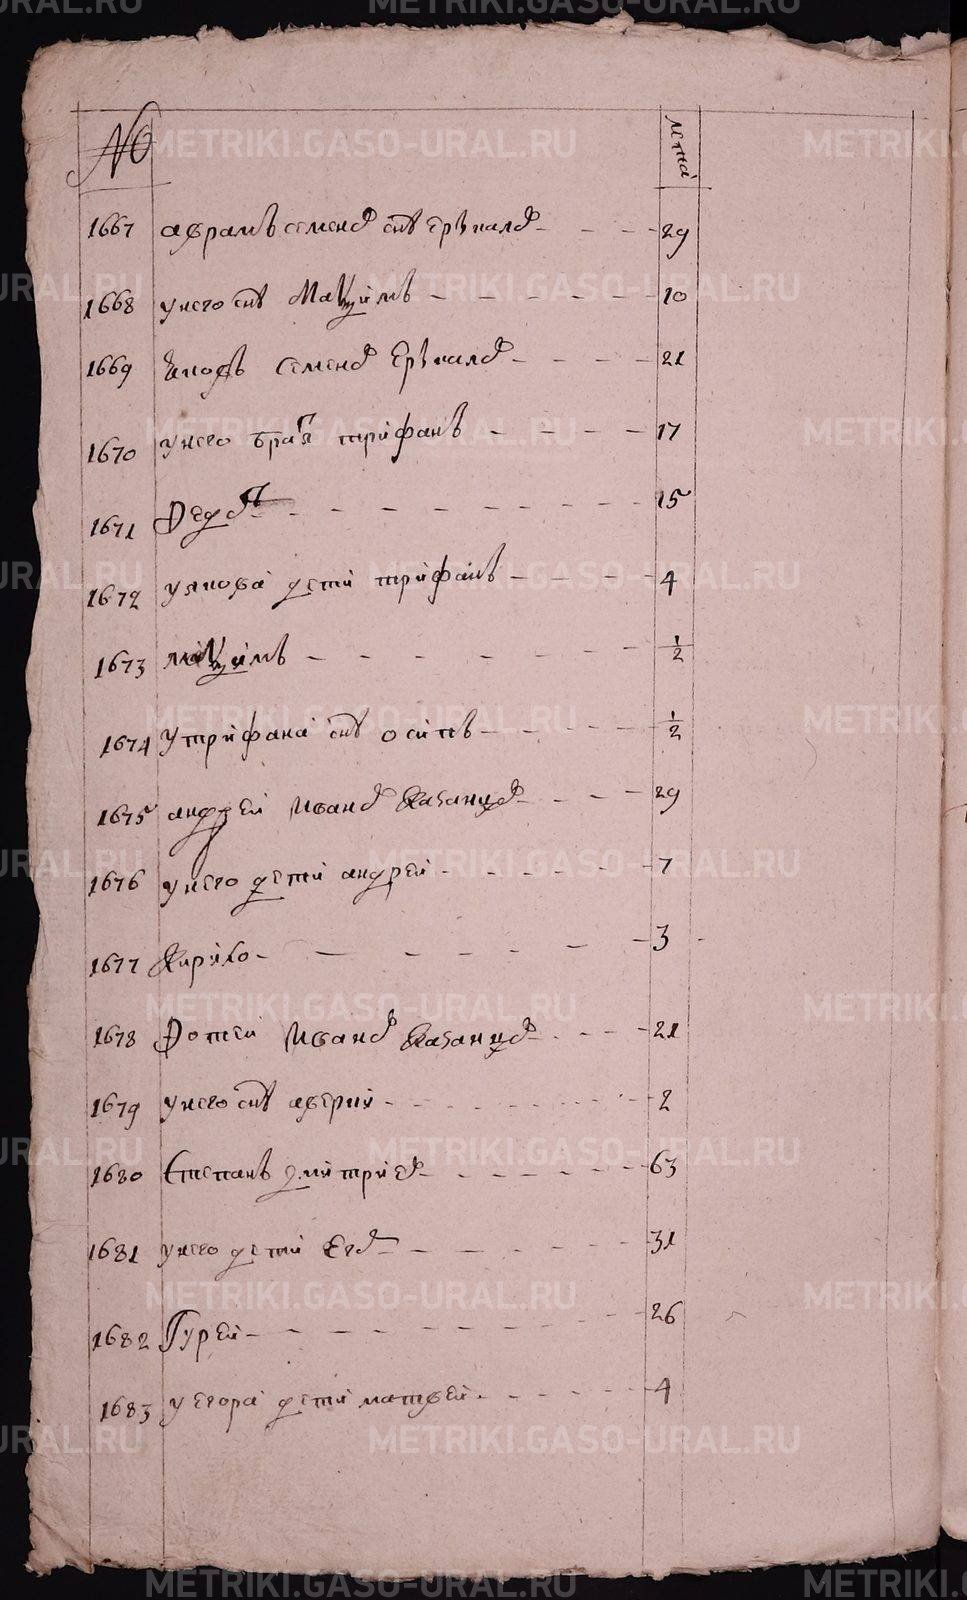 № лета
1667 аврамъ семенов снъ еръкалов 29
1668 у него снъ Маѯимъ 10
1669 Яковъ семенов Еръкалов 21
1670 у него братя трифанъ 17
1671 Федот 15
1672 у якова дети трифанъ 4
1673 маѯимъ 1/2
1674 у трифана снъ осипъ 1/2
1675 андрей Иванов Казанцов 29
1676 у него дети андрей 7
1677 Кирило 3
1678 Фотей Иванов Казанцов 21
1679 у него снъ аверки 2
1680 Степанъ дмитриев 63
1681 у него дети Егор 31
1682 Гурей 26
1683 у егора дети матвей 4
METRIKI.GASO-URAL.RU